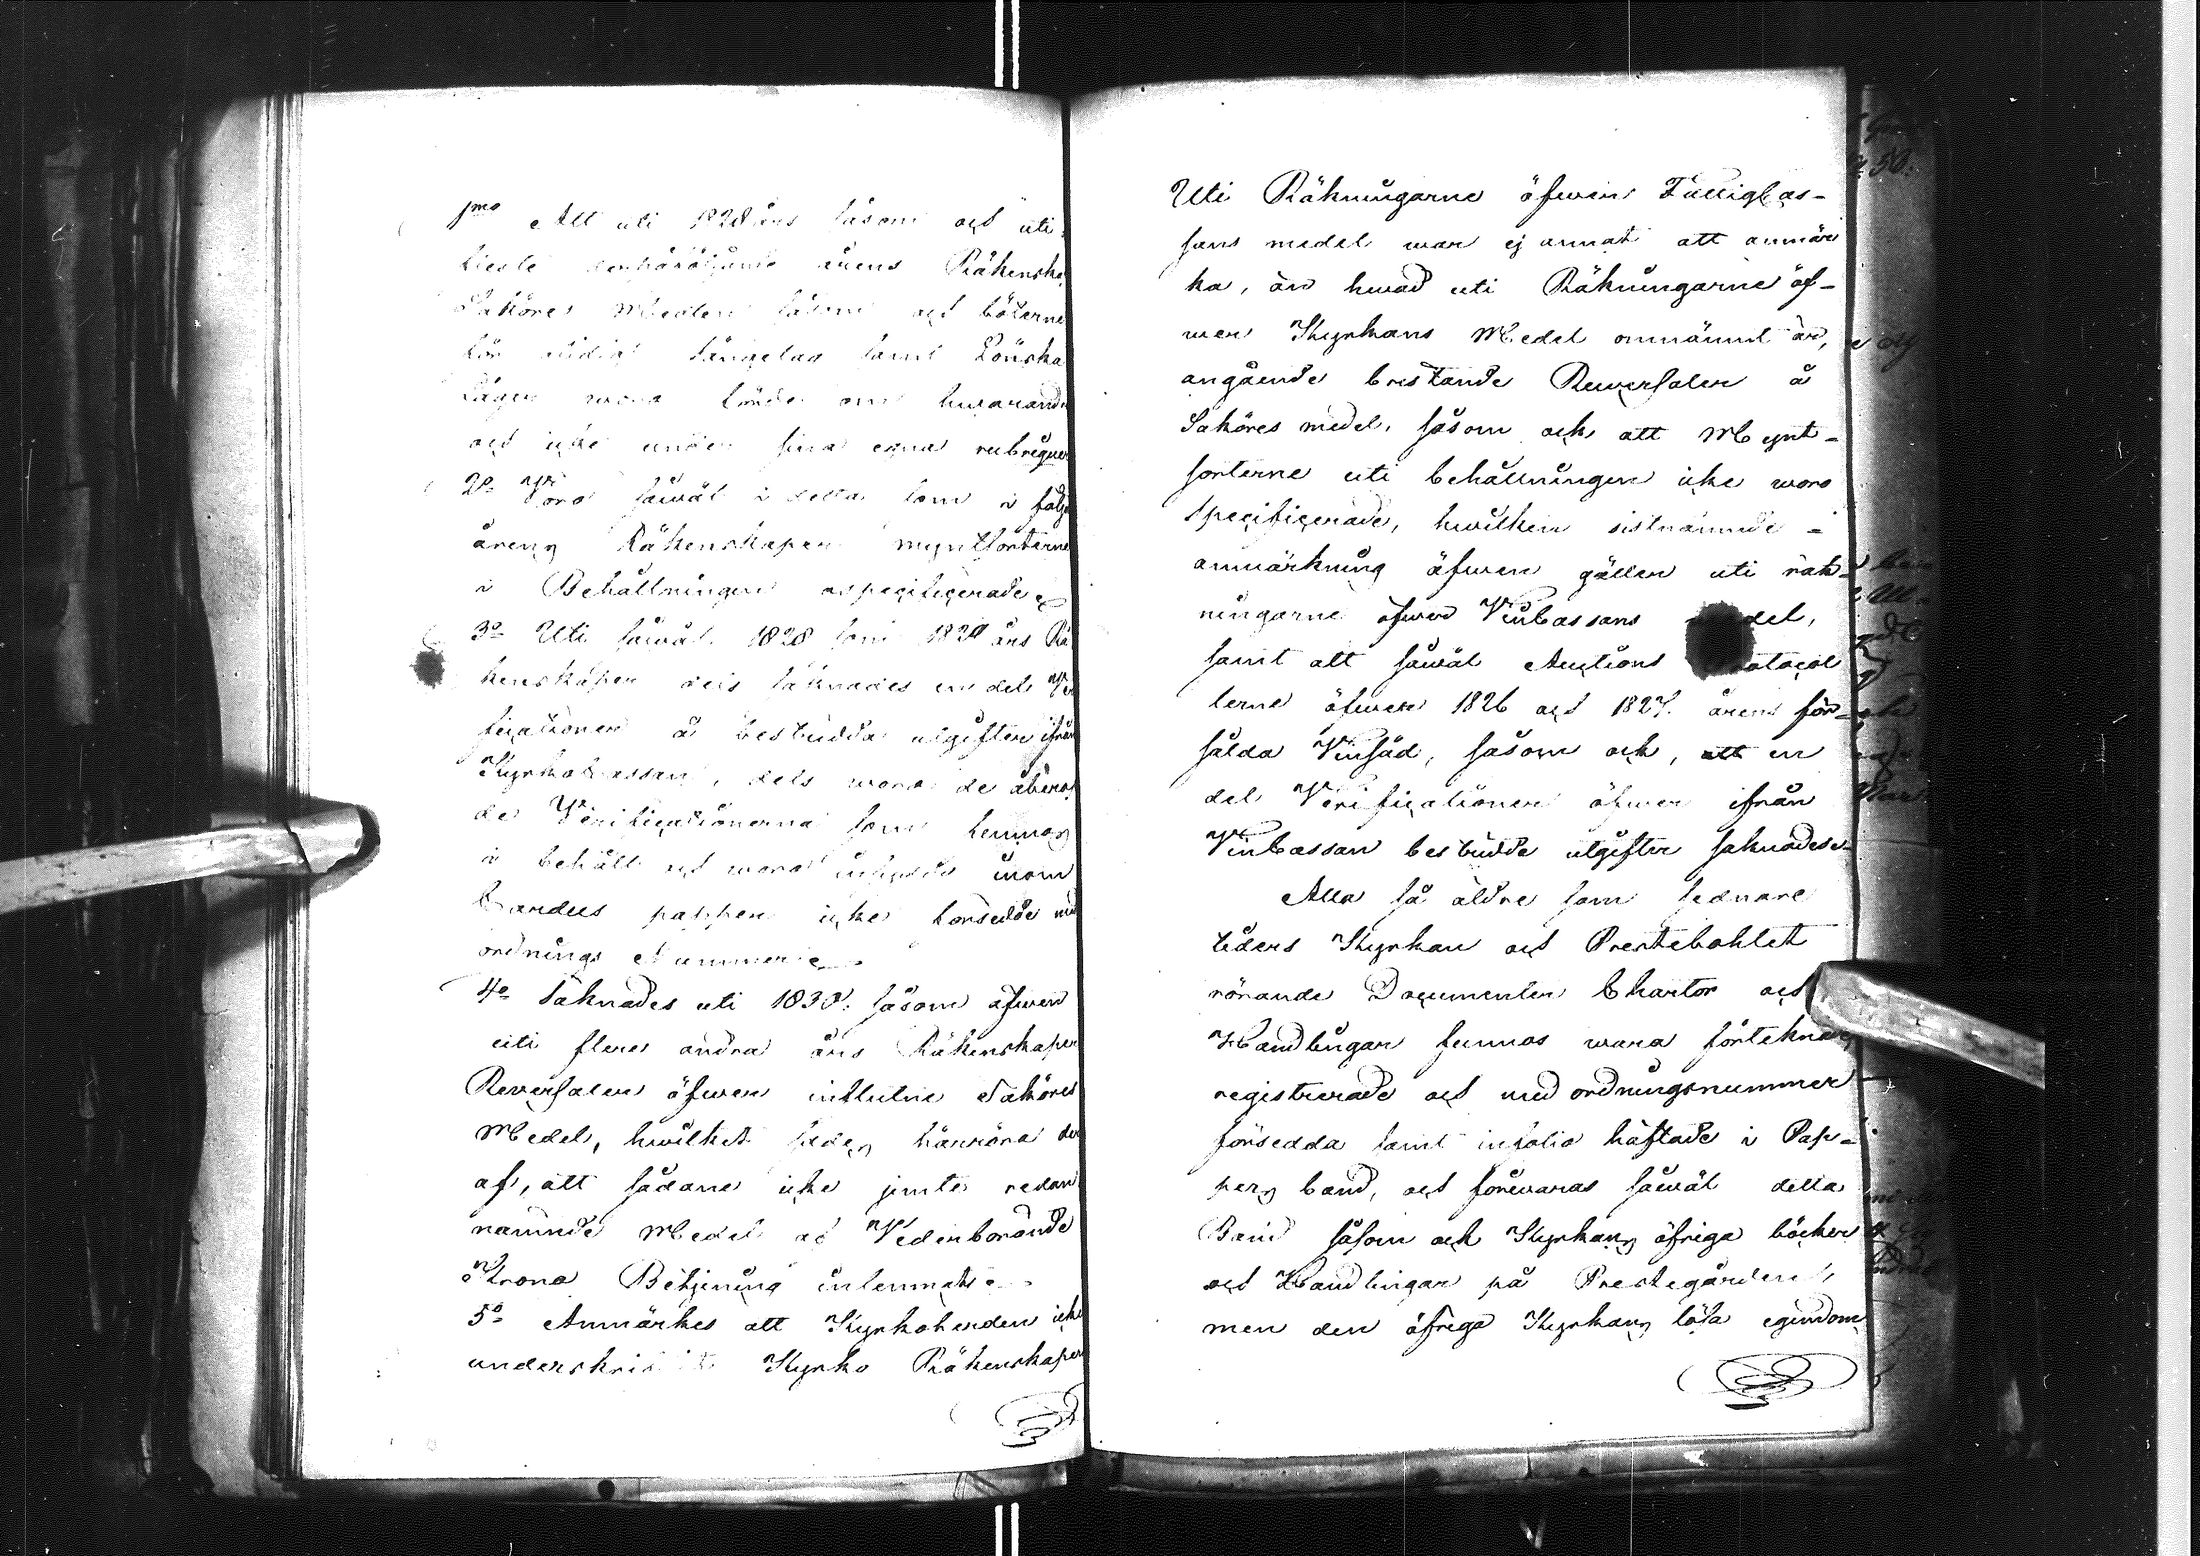 1mo Att uti 1828 års såsom och uti
fleste derpåföljande årens Räkenska
Saköres Medlen såsom och böterne
för olidligt Sängelag samt Lönska
Läger wora förde om hwarandra
och icke under sina egna rubriquer
2o Voro såwäl i detta som i följ
årens Räkenskaper myntsorterne
i Behållningen ospecificerade
3o Uti såwäl 1828 som 1829 års Rä
kenskaper dels saknades en del Ve
ficationer å bestridda utgifter ifrån
Kyrkokassan, dels wora de åberop
de Verificationerna som funnos
i behåll och wora inhäftade inom
Cardus papper icke försedde med
ordnings Nummer
4o Saknades uti 1830 såsom äfwen
uti flere andra års Räkenskaper
Reverfaler öfwer influtne Saköres
Medel, hwilket sades härröra der
af, att sådane icke jemte redan
nämnde Medel af Vederbörande
Krono Betjening inlemnats
5o Anmärkes att Kyrkoherden icke
underskrifvit Kyrko Räkenskaper
Uti Räkningarne öfwer Fattigcas-
sans medel war ej annat att anmär
ka, än hwad uti Räkningarne öf-
wer Kyrkans Medel omnämnt är,
angående bristande Rewersaler å
Saköres medel, såsom och att Mynt-
sorterne uti behållningen icke woro
specificerade, hwilken sistnämnde
anmärkning äfwen gäller uti räk-
ningarne öfwer Vincassans del,
samt att såwäl Auctions otocol
lerne öfwer 1826 och 1827 årens för-
sålda Vinsäd, såsom och, att en
del Verificationer öfwer ifrån
Vincassan bestridde utgifter saknades
Alla så äldre som sednare
tiders Kyrkan och Prestebohlet
rörande Documenter Chartor och
Handlingar funnos wara förteknade
registrerade och med ordningsnummer
försedda samt infolio häftade i Pap-
pers band, och förwaras såwäl detta
Band såsom och Kyrkans öfriga böcker
och Handlingar på Prestegården,
men den öfriga Kyrkans lösa egendom